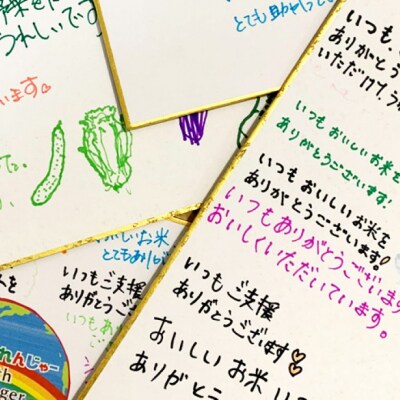 うれしいです
います
とても助かって
いつも
ありがとう
いただけて、う
いつもおいしいお米を
ありがとうございます。
いつもおいしいお米を
ありがとうございます!
いつもありがとうございます
おいしくいただいています。
いつもご支援
ありがとうございます
おいしいお米 いつ
ありがとう
しいお米
とてもありが
いつもご支援
ありがとうござ
いつもあ
れんじゃー
th
ger